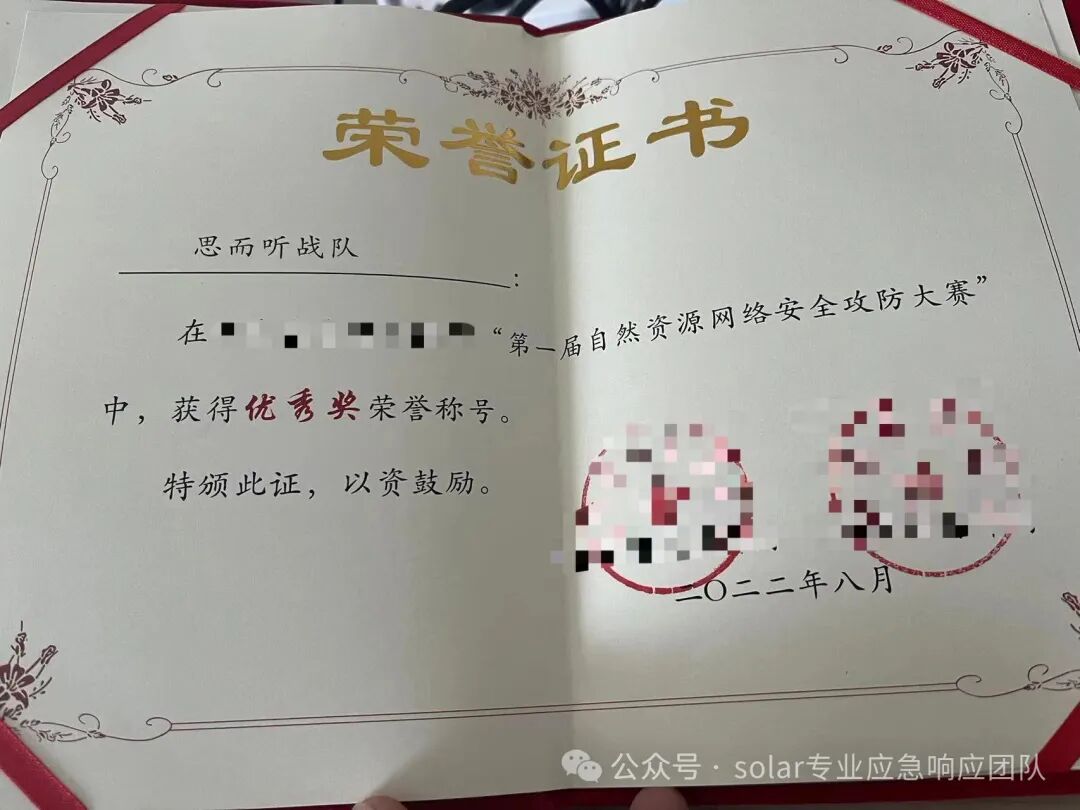 荣誉证书
思而听战队：
在 “第一届自然资源网络安全攻防大赛”
中，获得优秀奖荣誉称号。
特颁此证，以资鼓励。
二〇二二年八月
公众号 · solar专业应急响应团队